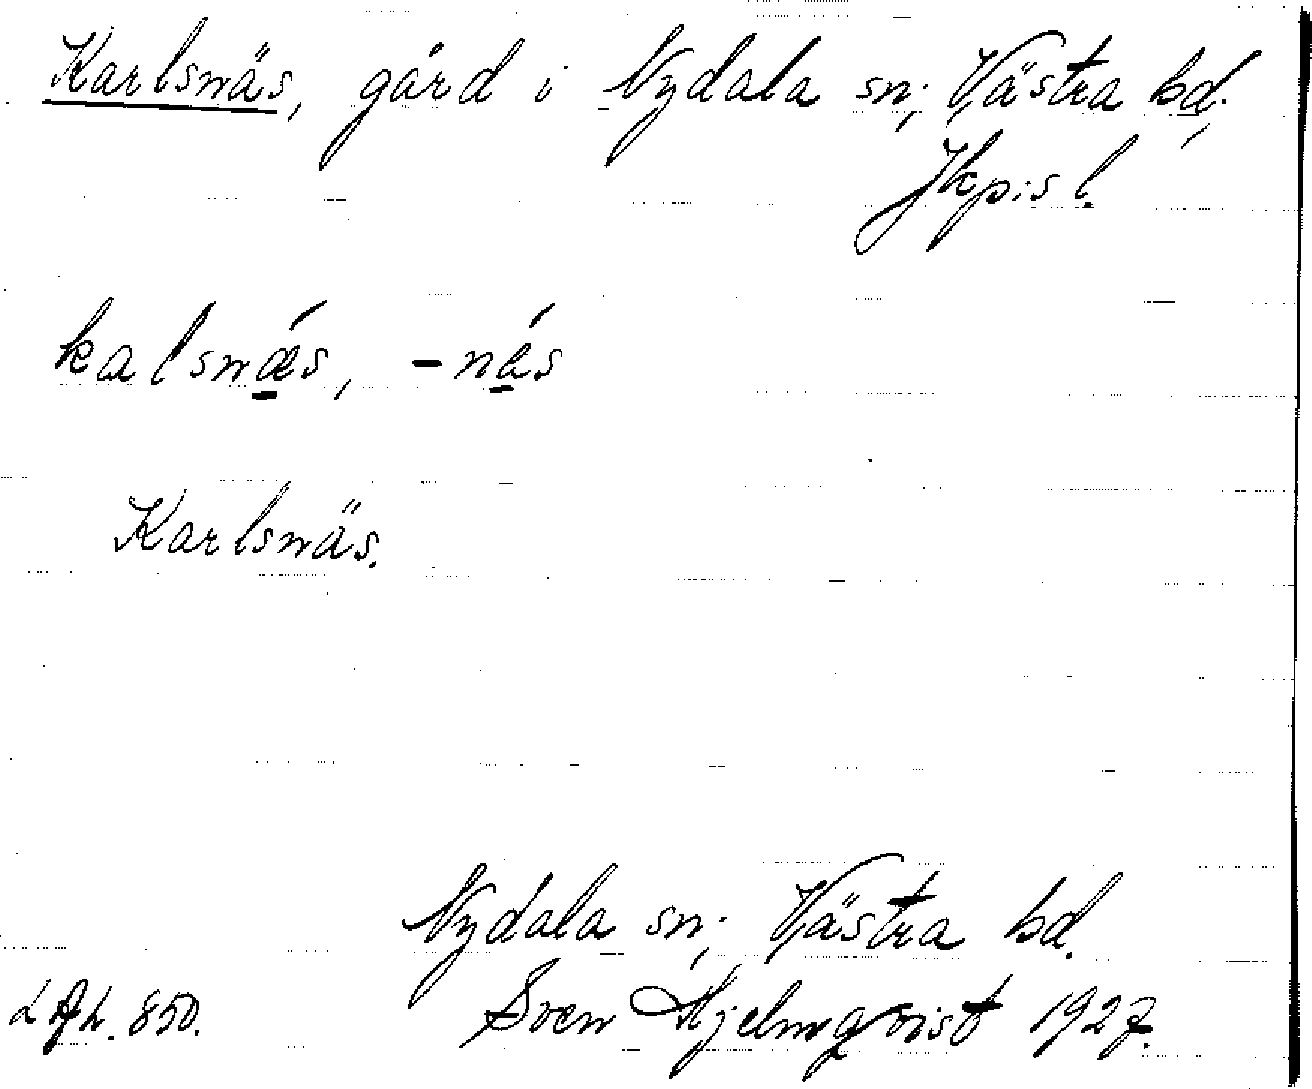 Karlsnäs, gård i Nydala sn; Västra hd,
Jkpis l.
kalsnǽs, -nás
Karlsnäs.
Nydala sn; Västra hd.
Sven Hjelmqvist 1927.
850.